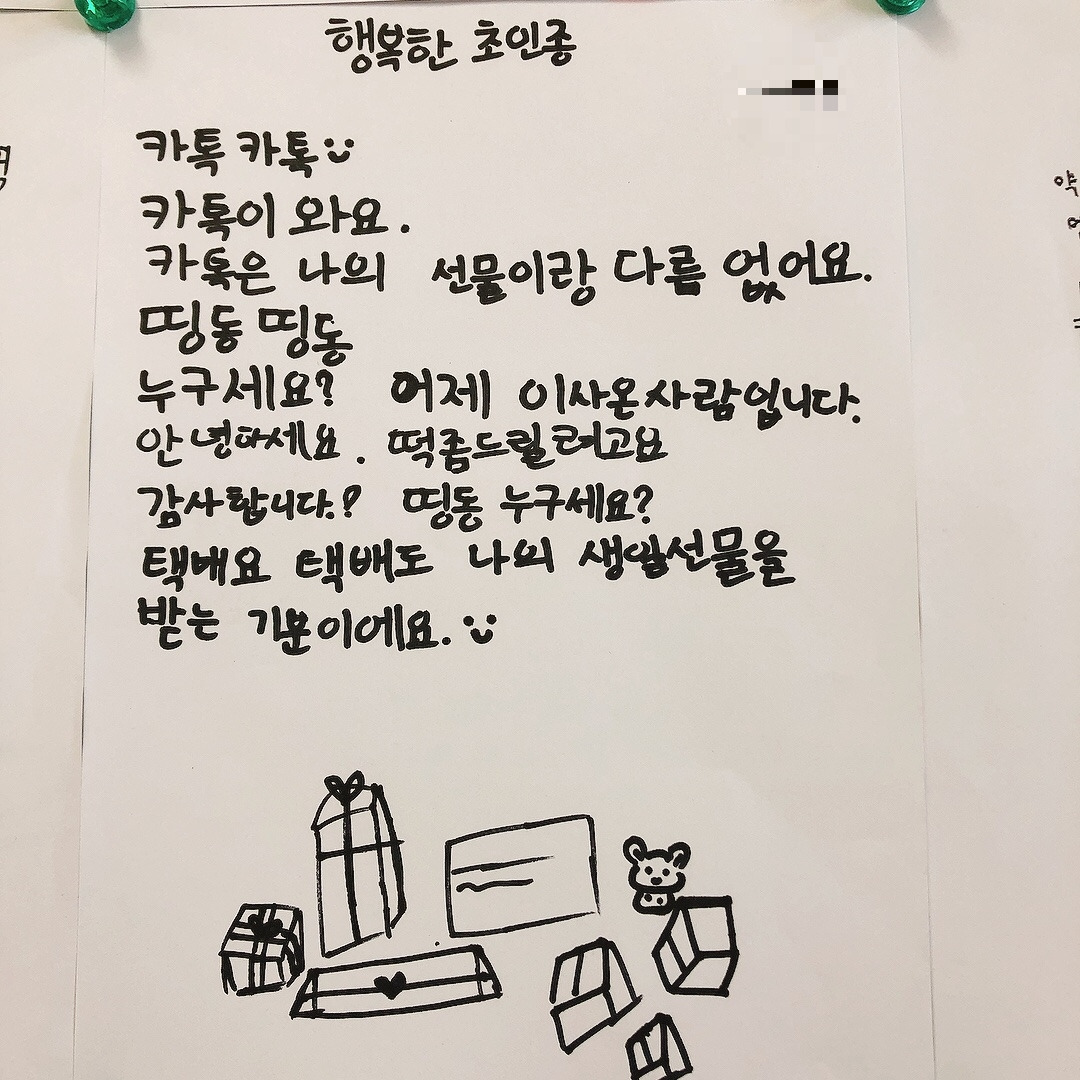 행복한 초인종
카톡 카톡
카톡이 와요.
카톡은 나의 선물이랑 다름 없어요.
띵동 띵동
누구세요? 어제 이사온사람입니다.
안녕하세요. 떡좀드릴려고요
감사합니다.? 띵동 누구세요?
택배요 택배도 나의 생일선물을
받는 기분이에요.
약